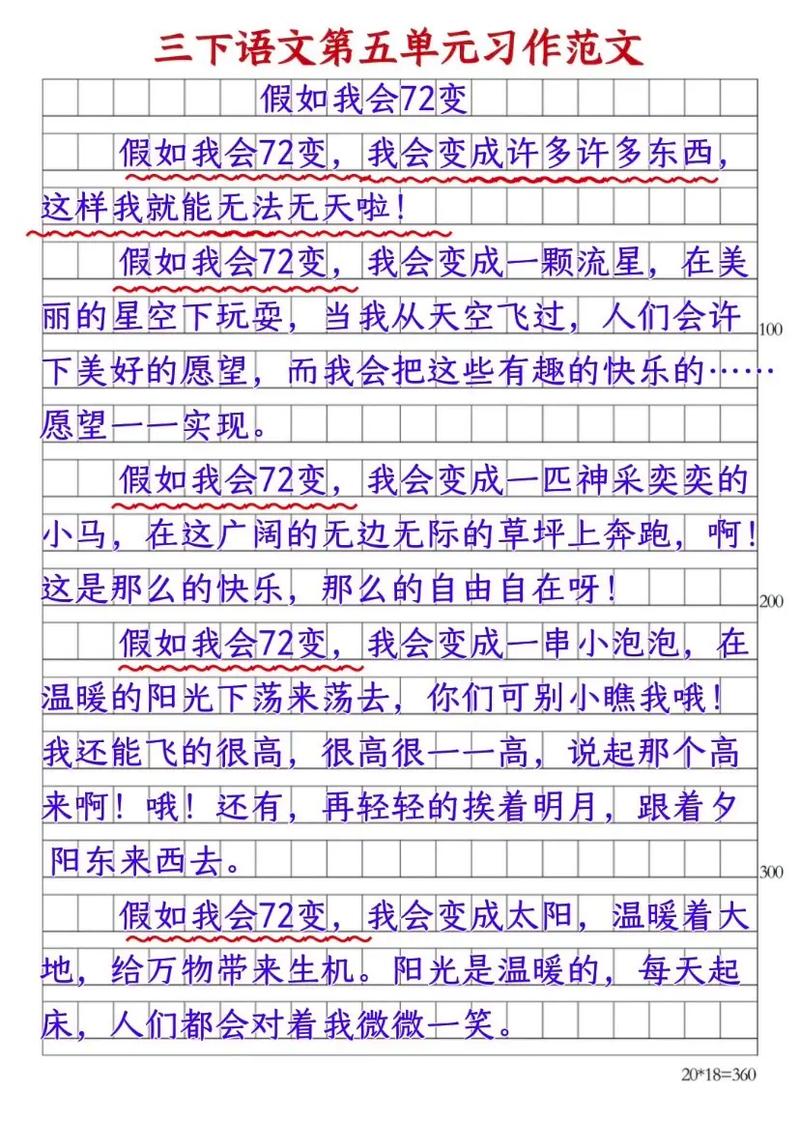 三下语文第五单元习作范文
假如我会72变
假如我会72变，我会变成许多许多东西，
这样我就能无法无天啦！
假如我会72变，我会变成一颗流星，在美
丽的星空下玩耍，当我从天空飞过，人们会许
100
下美好的愿望，而我会把这些有趣的快乐的……
愿望一一实现。
假如我会72变，我会变成一匹神采奕奕的
小马，在这广阔的无边无际的草坪上奔跑，啊！
这是那么的快乐，那么的自由自在呀！
200
假如我会72变，我会变成一串小泡泡，在
温暖的阳光下荡来荡去，你们可别小瞧我哦！
我还能飞的很高，很高很一一高，说起那个高
来啊！哦！还有，再轻轻的挨着明月，跟着夕
阳东来西去。
300
假如我会72变，我会变成太阳，温暖着大
地，给万物带来生机。阳光是温暖的，每天起
床，人们都会对着我微微一笑。
20*18=360